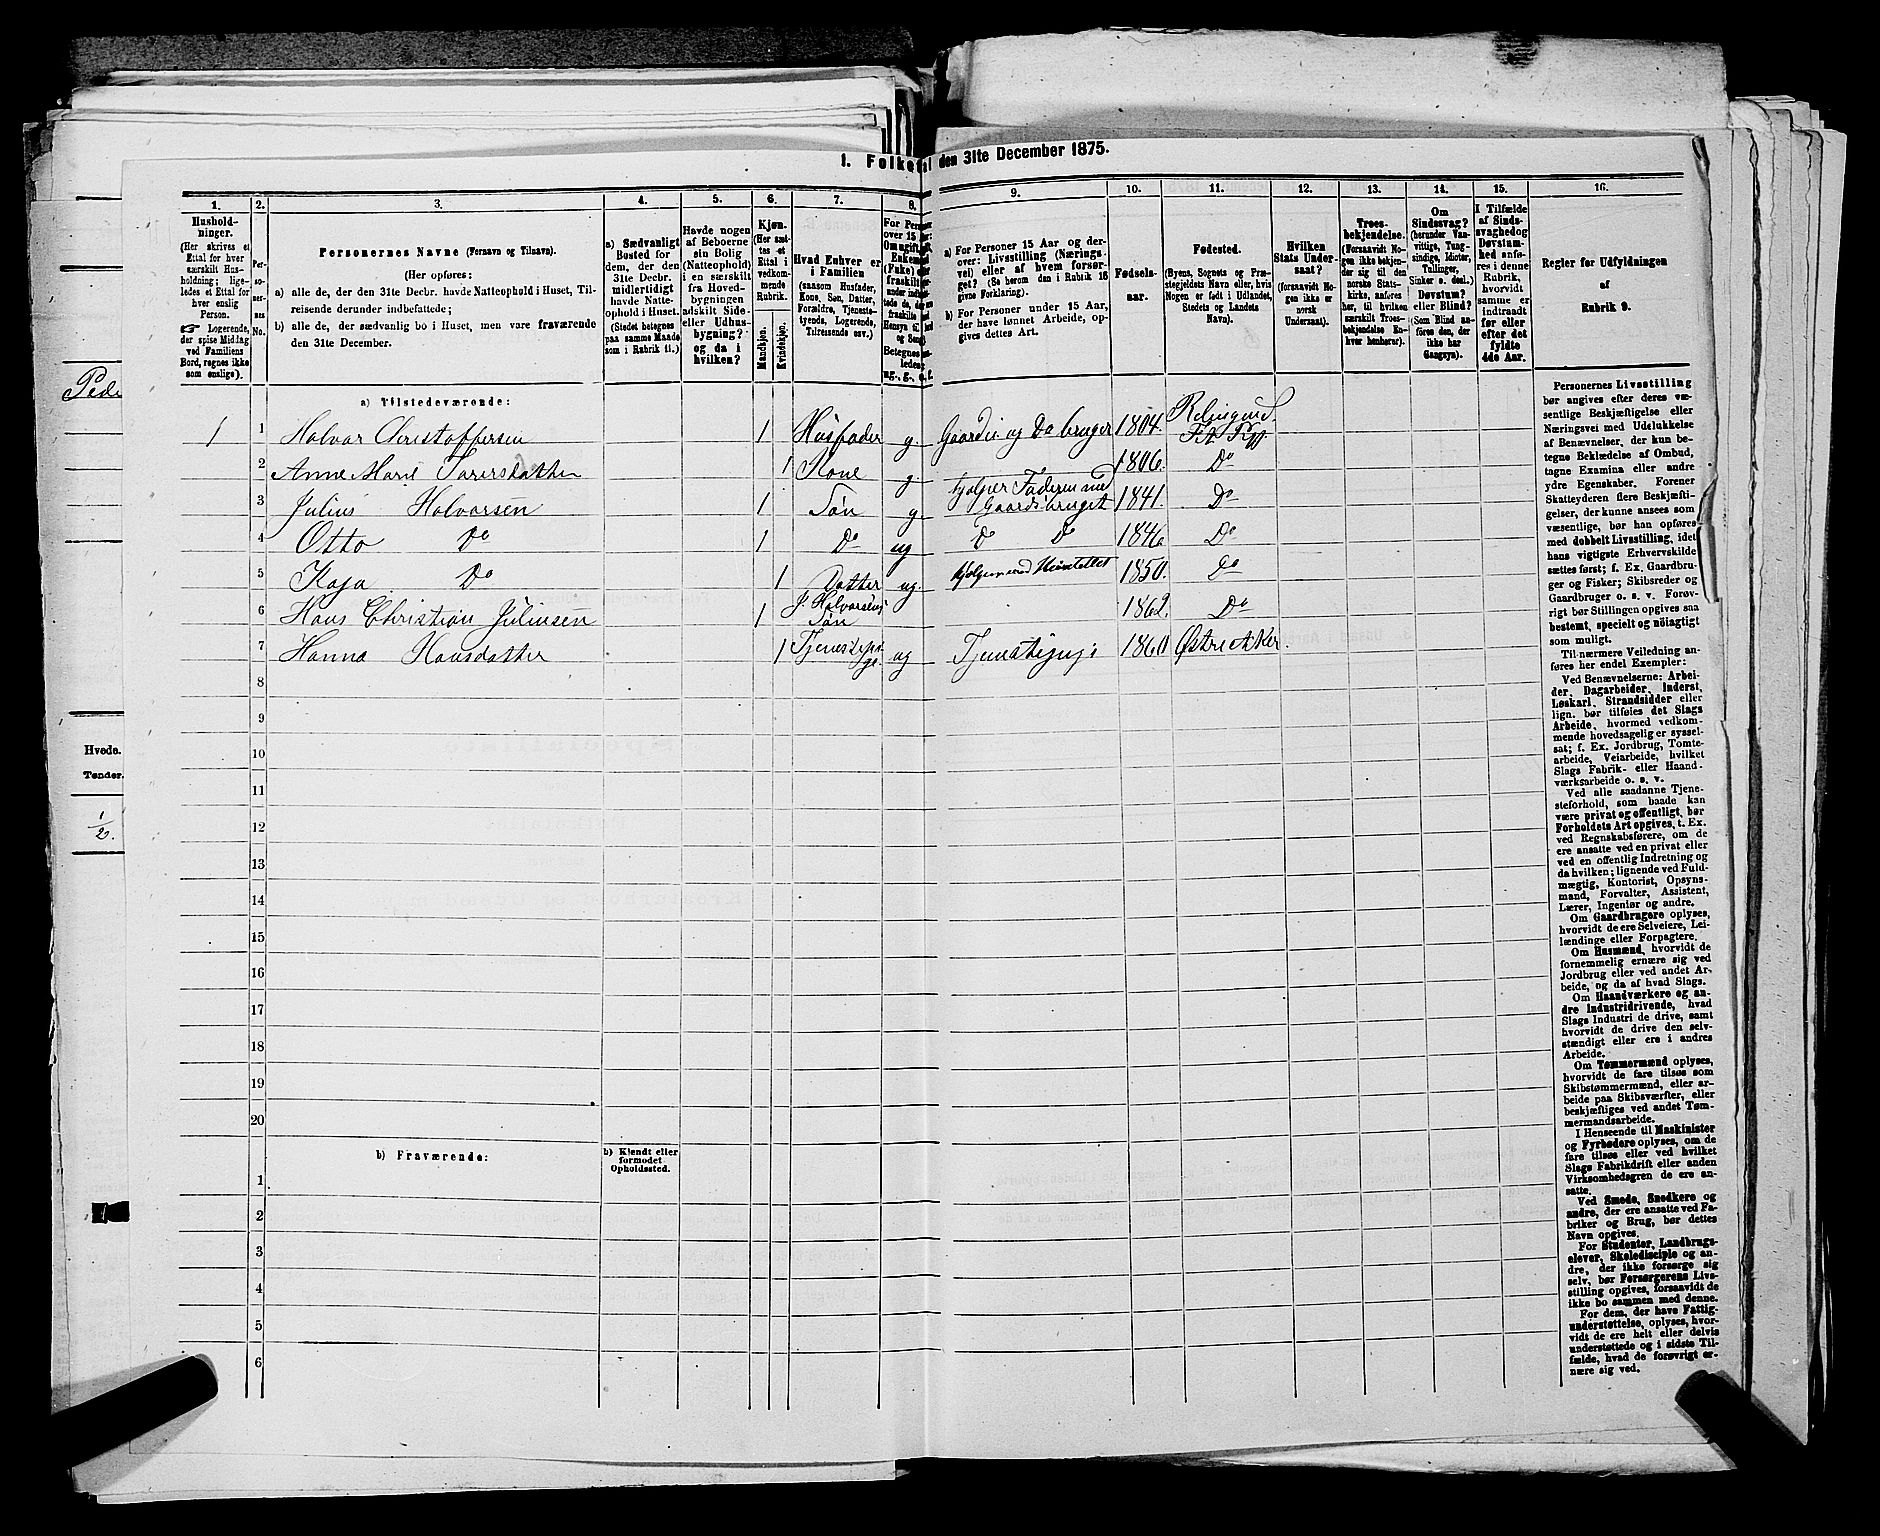 1. Folketal den 31te December 1875.
1. 2. 3. 4. 5. 6. 7. 8. 9. 10. 11. 12. 13. 14. 15. 16.
Hushold-
ninger.
(Her skrives et
Ettal for hver
særskilt Hus-
holdning; lige-
ledes et Ettal for
hver enslig
Person.
Logerende,
der spise Middag
ved Familiens
Bord, regnes ikke
som enslige).
Per-
so-
ner-
nes
No.
Personernes Navne (Fornavn og Tilnavn).
(Her opføres:
a) alle de, der den 31te Decbr. havde Natteophold i Huset, Til-
reisende derunder indbefattede;
b) alle de, der sædvanlig bo i Huset, men vare fraværende
den 31te December.
a) Sædvanligt
Bosted for
dem, der den
31te Decbr.
midlertidigt
havde Natte-
ophold i Huset.
(Stedet betegnes
paa samme Maade
som i Rubrik 11.)
Havde nogen
af Beboerne
sin Bolig
(Natteophold)
i en særskilt
fra Hoved-
bygningen
adskilt Side-
eller Udhus-
bygning?
og da i
hvilken?
Kjøn.
(Her sæt-
tes et
Ettal i
vedkom-
mende
Rubrik.
Mandkjøn.
Kvindekjøn.
Hvad Enhver er
i Familien
(saasom Husfader,
Kone, Søn, Datter,
Forældre, Tjeneste-
tyende, Logerende,
Tilreisende osv.)
a) For Personer 15 Aar og der-
over: Livsstilling (Nærings-
vei) eller af hvem forsør-
get? (Se herom den i Rubrik 16
givne Forklaring).
b) For Personer under 15 Aar,
der have lønnet Arbeide, op-
gives dettes Art.
Fødsels-
aar.
Fødested.
(Byens, Sognets og Præ-
stegjeldets Navn eller, hvis
Nogen er født i Udlandet,
Stedets og Landets
Navn).
Hvilken
Stats Under-
saat?
(forsaavidt No-
gen ikke er
norsk
Undersaat).
Troes-
bekjendelse.
(Forsaavidt No-
gen ikke bekjen-
der sig til den
norske Stats-
kirke, anføres
her, til hvilken
særskilt Troes-
bekjendelse En-
hver henhører).
Om
Sindssvag?
(herunder Van-
vittige, Tung-
sindige, Idioter,
Tullinger,
Sinker o. desl.)
Døvstum?
eller Blind?
(Som Blind an-
føres den, der
ikke har
Gangsyn).
I Tilfælde
af Sinds-
svaghed og
Døvstum-
hed anfø-
res i denne
Rubrik,
hvorvidt
samme er
indtraadt
før eller
efter det
fyldte
4de Aar.
Regler for Udfyldningen
af
Rubrik 9.
a) Tilstedeværende:
1 1 Halvar Christoffersen 1 Husfader g. Gaardei og Do bruger 1804.
2 Anne Marie 1 Kone g. 1806. Do
3 Julius Halvorsen 1 Søn g. hjelper Faderen med Gaardsbruget 1841. Do
4 Otto Do 1 Do ug Do Do 1846. Do
5 Kaja Do 1 Datter ug. 1850. Do
6 Hans Christian Juliusen 1 J. Halvorsens Søn 1862. Do
7 Hanna Hansdatter 1 ug 1860 Østre Aker.
8
9
10
11
12
13
14
15
16
17
18
19
20
b) Fraværende:
b) Kjendt eller
formodet
Opholdssted.
1
2
3
4
5
6
Personernes Livsstilling
bør angives efter deres væ-
sentlige Beskjæftigelse eller
Næringsvei med Udelukkelse
af Benævnelser, der kun be-
tegne Beklædelse af Ombud,
tagne Examina eller andre
ydre Egenskaber. Forener
Skatteyderen flere Beskjæfti-
gelser, der kunne ansees som
væsentlige, bør han opføres
med dobbelt Livsstilling, idet
hans vigtigste Erhvervskilde
sættes først; f. Ex. Gaardbru-
ger og Fisker; Skibsreder og
Gaardbruger o. s. v. Forøv-
rigt bør Stillingen opgives saa
bestemt, specielt og nöiagtigt
som muligt.
Til nærmere Veiledning an-
føres her endel Exempler:
Ved Benævnelserne: Arbei-
der, Dagarbeider, Inderst,
Løskarl, Strandsidder eller
lign. bør tilføies det Slags
Arbeide, hvormed vedkom-
mende hovedsagelig er syssel-
sat; f. Ex. Jordbrug, Tomte-
arbeide, Veiarbeide, hvilket
Slags Fabrik- eller Haand-
værksarbeide o. s. v.
Ved alle saadanne Tjene-
steforhold, som baade kan
være privat og offentligt, bør
Forholdets Art opgives, t. Ex.
ved Regnskabsførere, om de
ere ansatte ved en privat eller
ved en offentlig Indretning og
da hvilken; lignende ved Fuld-
mægtig, Kontorist, Opsyns-
mand, Forvalter, Assistent,
Lærer, Ingeniør og andre.
Om Gaardbrugere oplyses,
hvorvidt de ere Selveiere, Lei-
lændinge eller Forpagtere.
Om Husmænd, hvorvidt de
fornemmelig ernære sig ved
Jordbrug eller ved andet Ar-
beide, og da af hvad Slags.
Om Haandværkere og an-
dre Industridrivende, hvad
Slags Industri de drive, samt
hvorvidt de drive den selv-
stændigt eller ere i andres
Arbeide.
Om Tømmermænd oplyses,
hvorvidt de fare tilsøs som
Skibstømmermænd, eller ar-
beide paa Skibsværfter, eller
beskjæftiges ved andet Tøm-
mermandsarbeide.
I Henseende til Maskinister
og Fyrbødere oplyses, om de
fare tilsøs eller ved hvilket
Slags Fabrikdrift eller anden
Virksomhedsgren de ere an-
satte.
Ved Smede, Snedkere og
andre, der ere ansatte ved Fa-
briker og Brug, bør dettes
Navn opgives.
For Studenter, Landbrugs-
elever, Skoledisciple og an-
dre, der ikke forsørge sig
selv, bør Forsørgerens Livs-
stilling opgives, forsaavidt de
ikke bo sammen med denne.
For dem, der have Fattig-
understøttelse, oplyses, hvor-
vidt de ere helt eller delvis
understøttede og i sidste Til-
fælde, hvad de forøvrigt er-
nære sig ved.
Hvede.
Tønder.
1/2.